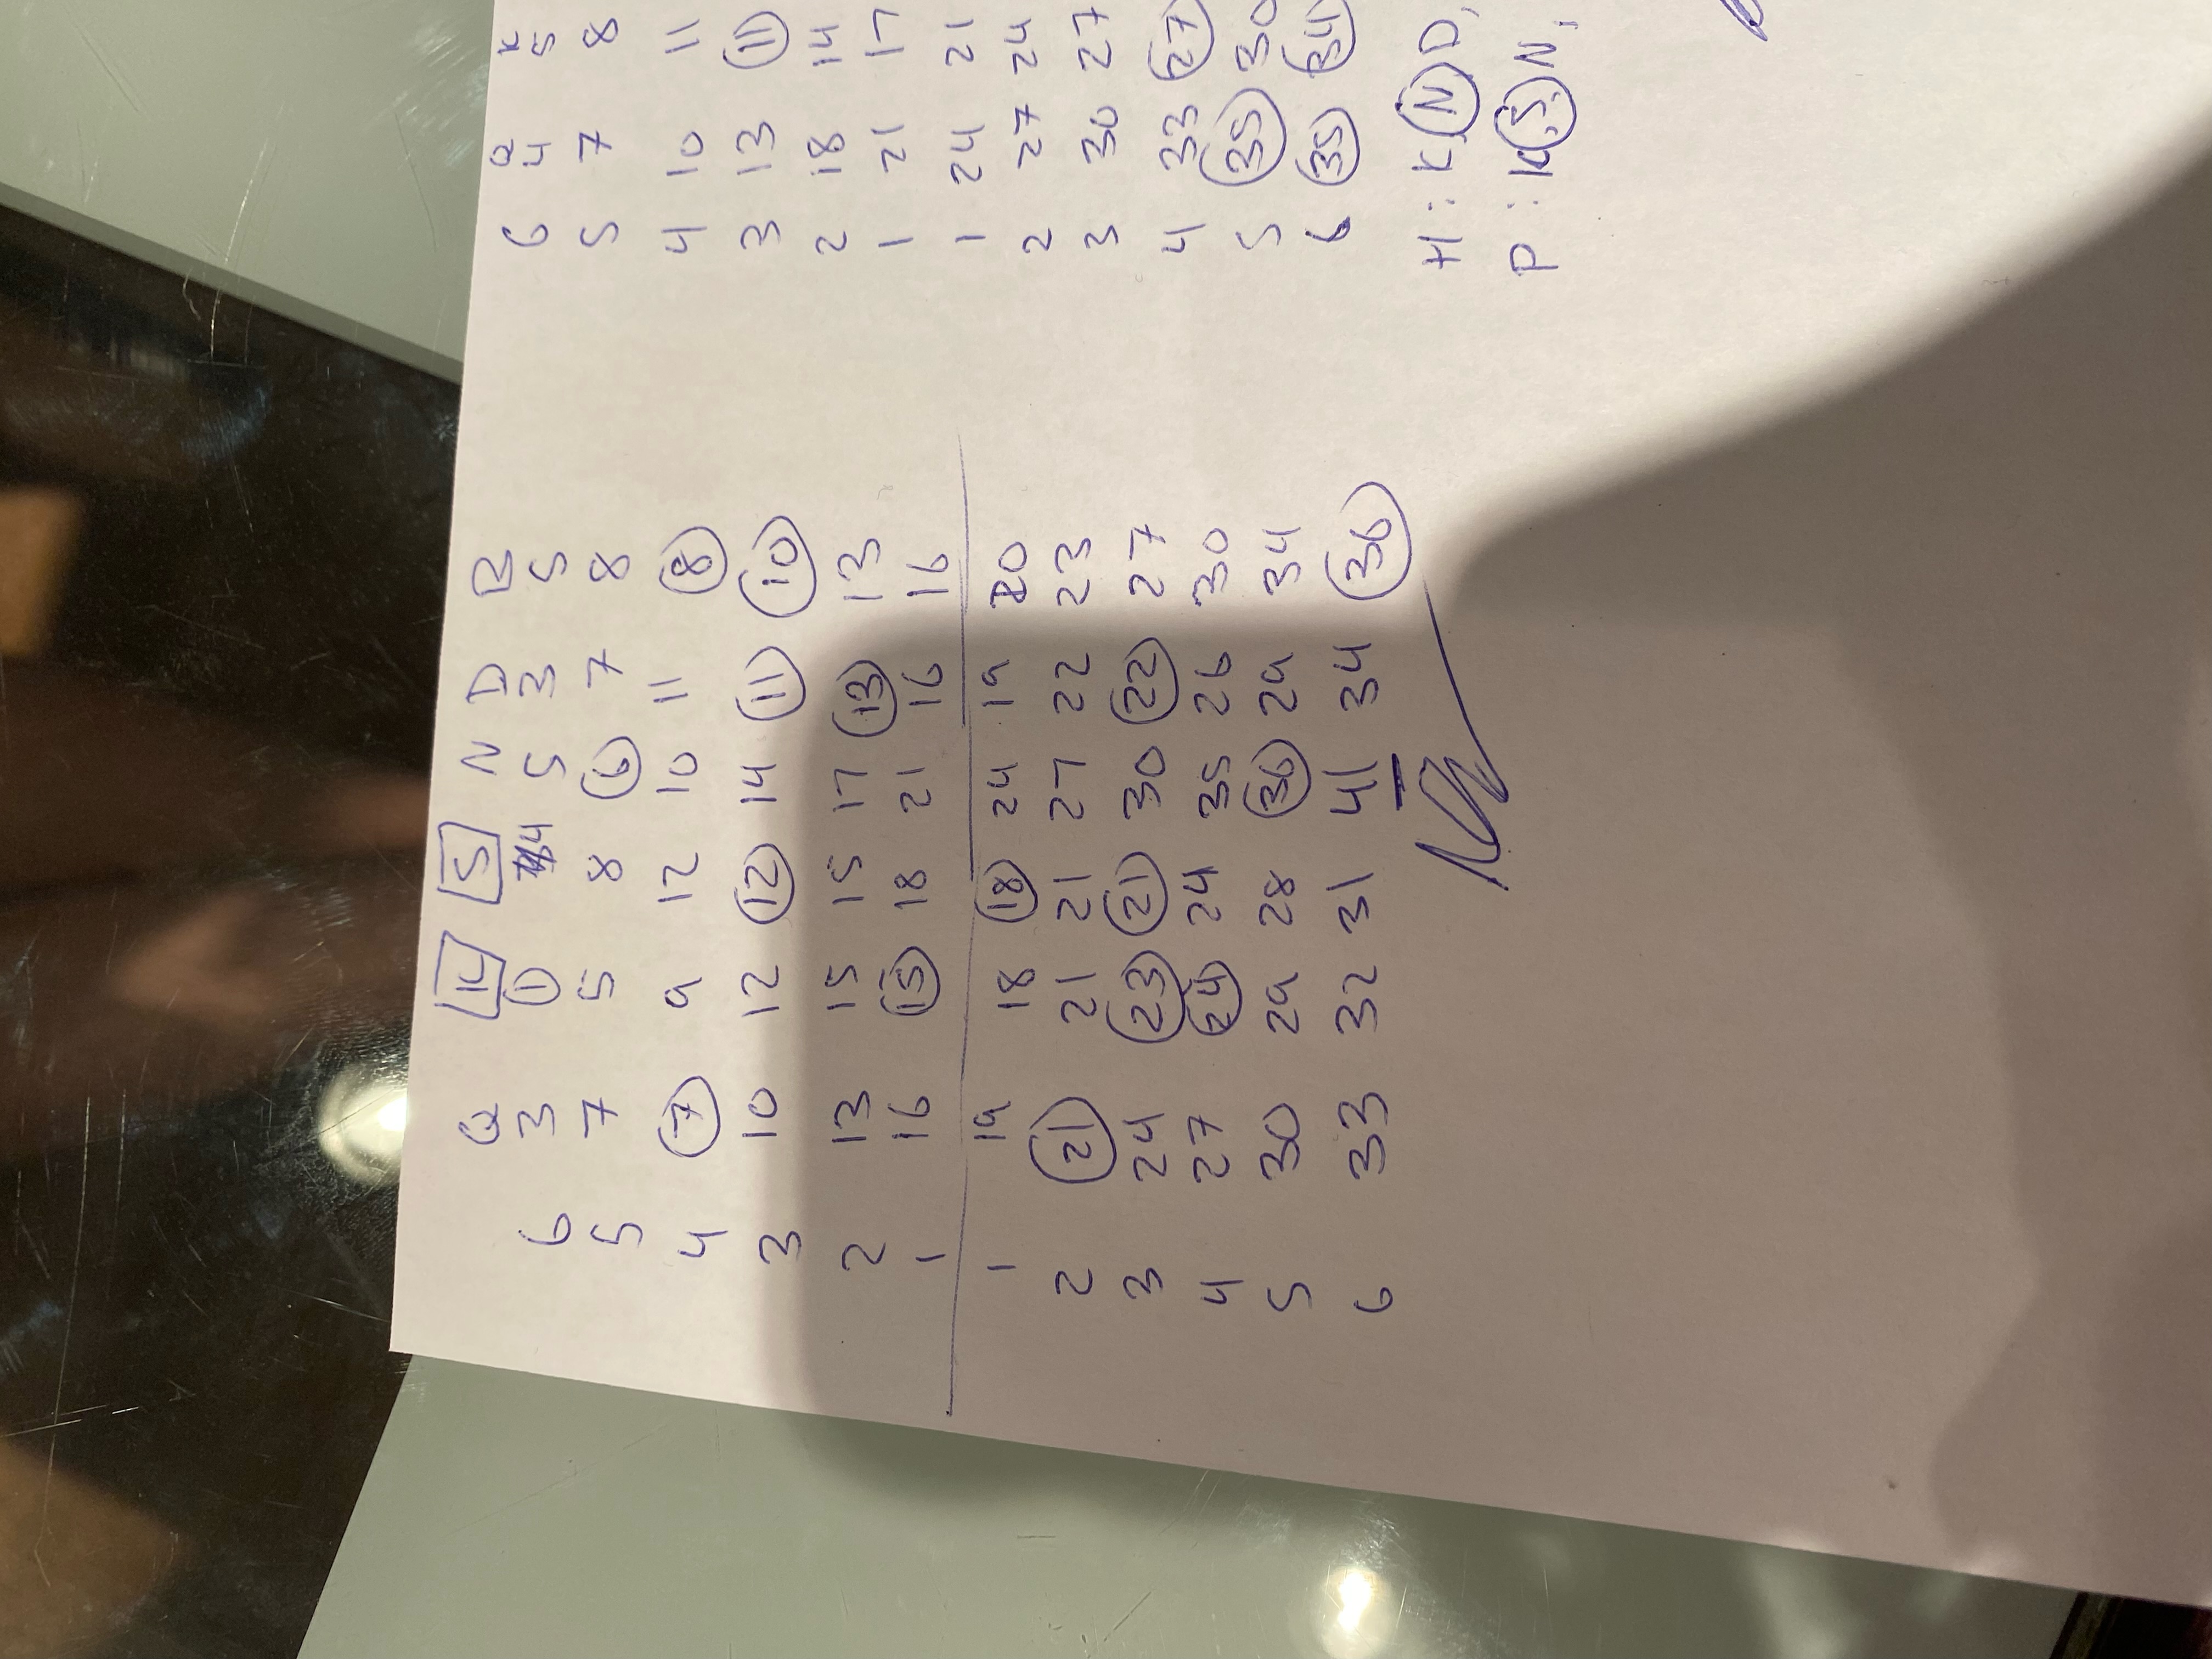 Q K S N D B
6 3 1 4 5 3 5
5 7 5 8 6 7 8
4 7 9 12 10 11 8
3 10 12 12 14 11 10
2 13 15 15 17 13 13
1 16 15 18 21 16 16
1 19 18 18 24 19 20
2 21 21 21 27 22 23
3 24 23 21 30 22 27
4 27 24 24 35 26 30
5 30 29 28 36 29 34
6 33 32 31 41 34 36
Q K
6 4 5
5 7 8
4 10 11
3 13 11
2 18 14
1 21 17
1 24 21
2 27 24
3 30 27
4 33 27
5 35 30
6 35 34
H: K, N, D,
P: K, S, N,